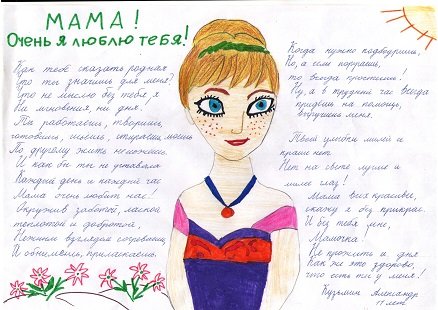 МАМА!
Очень я люблю тебя!
Как тебе сказать родная
Что ты значишь для меня?
Что не мыслю без тебя я
Ни мгновения, ни дня!
Ты работаешь, творишь,
готовишь, шьешь, стираешь, моешь
По другому жить не можешь.
И как бы ты не уставала
Каждый день и каждый час
Мама очень любит нас!
Окружив заботой, лаской
теплотой и добротой,
Нежным взглядом согреваешь
И обнимаешь, приласкаешь.
Когда нужно подбодришь,
Ну, а если поругаешь,
то всегда простишь!
Ну, а в трудный час всегда
придёшь на помощь,
выручишь меня.
Твоей улыбки милей и
краше нет
Нет на свете лучше и
милее глаз!
Мама всех красивее,
скажу я без прикрас.
И без тебя мне,
Мамочка
Не прожить и дня
Как же это здорово,
что есть ты у меня!
Кузьмин Александр
11 лет